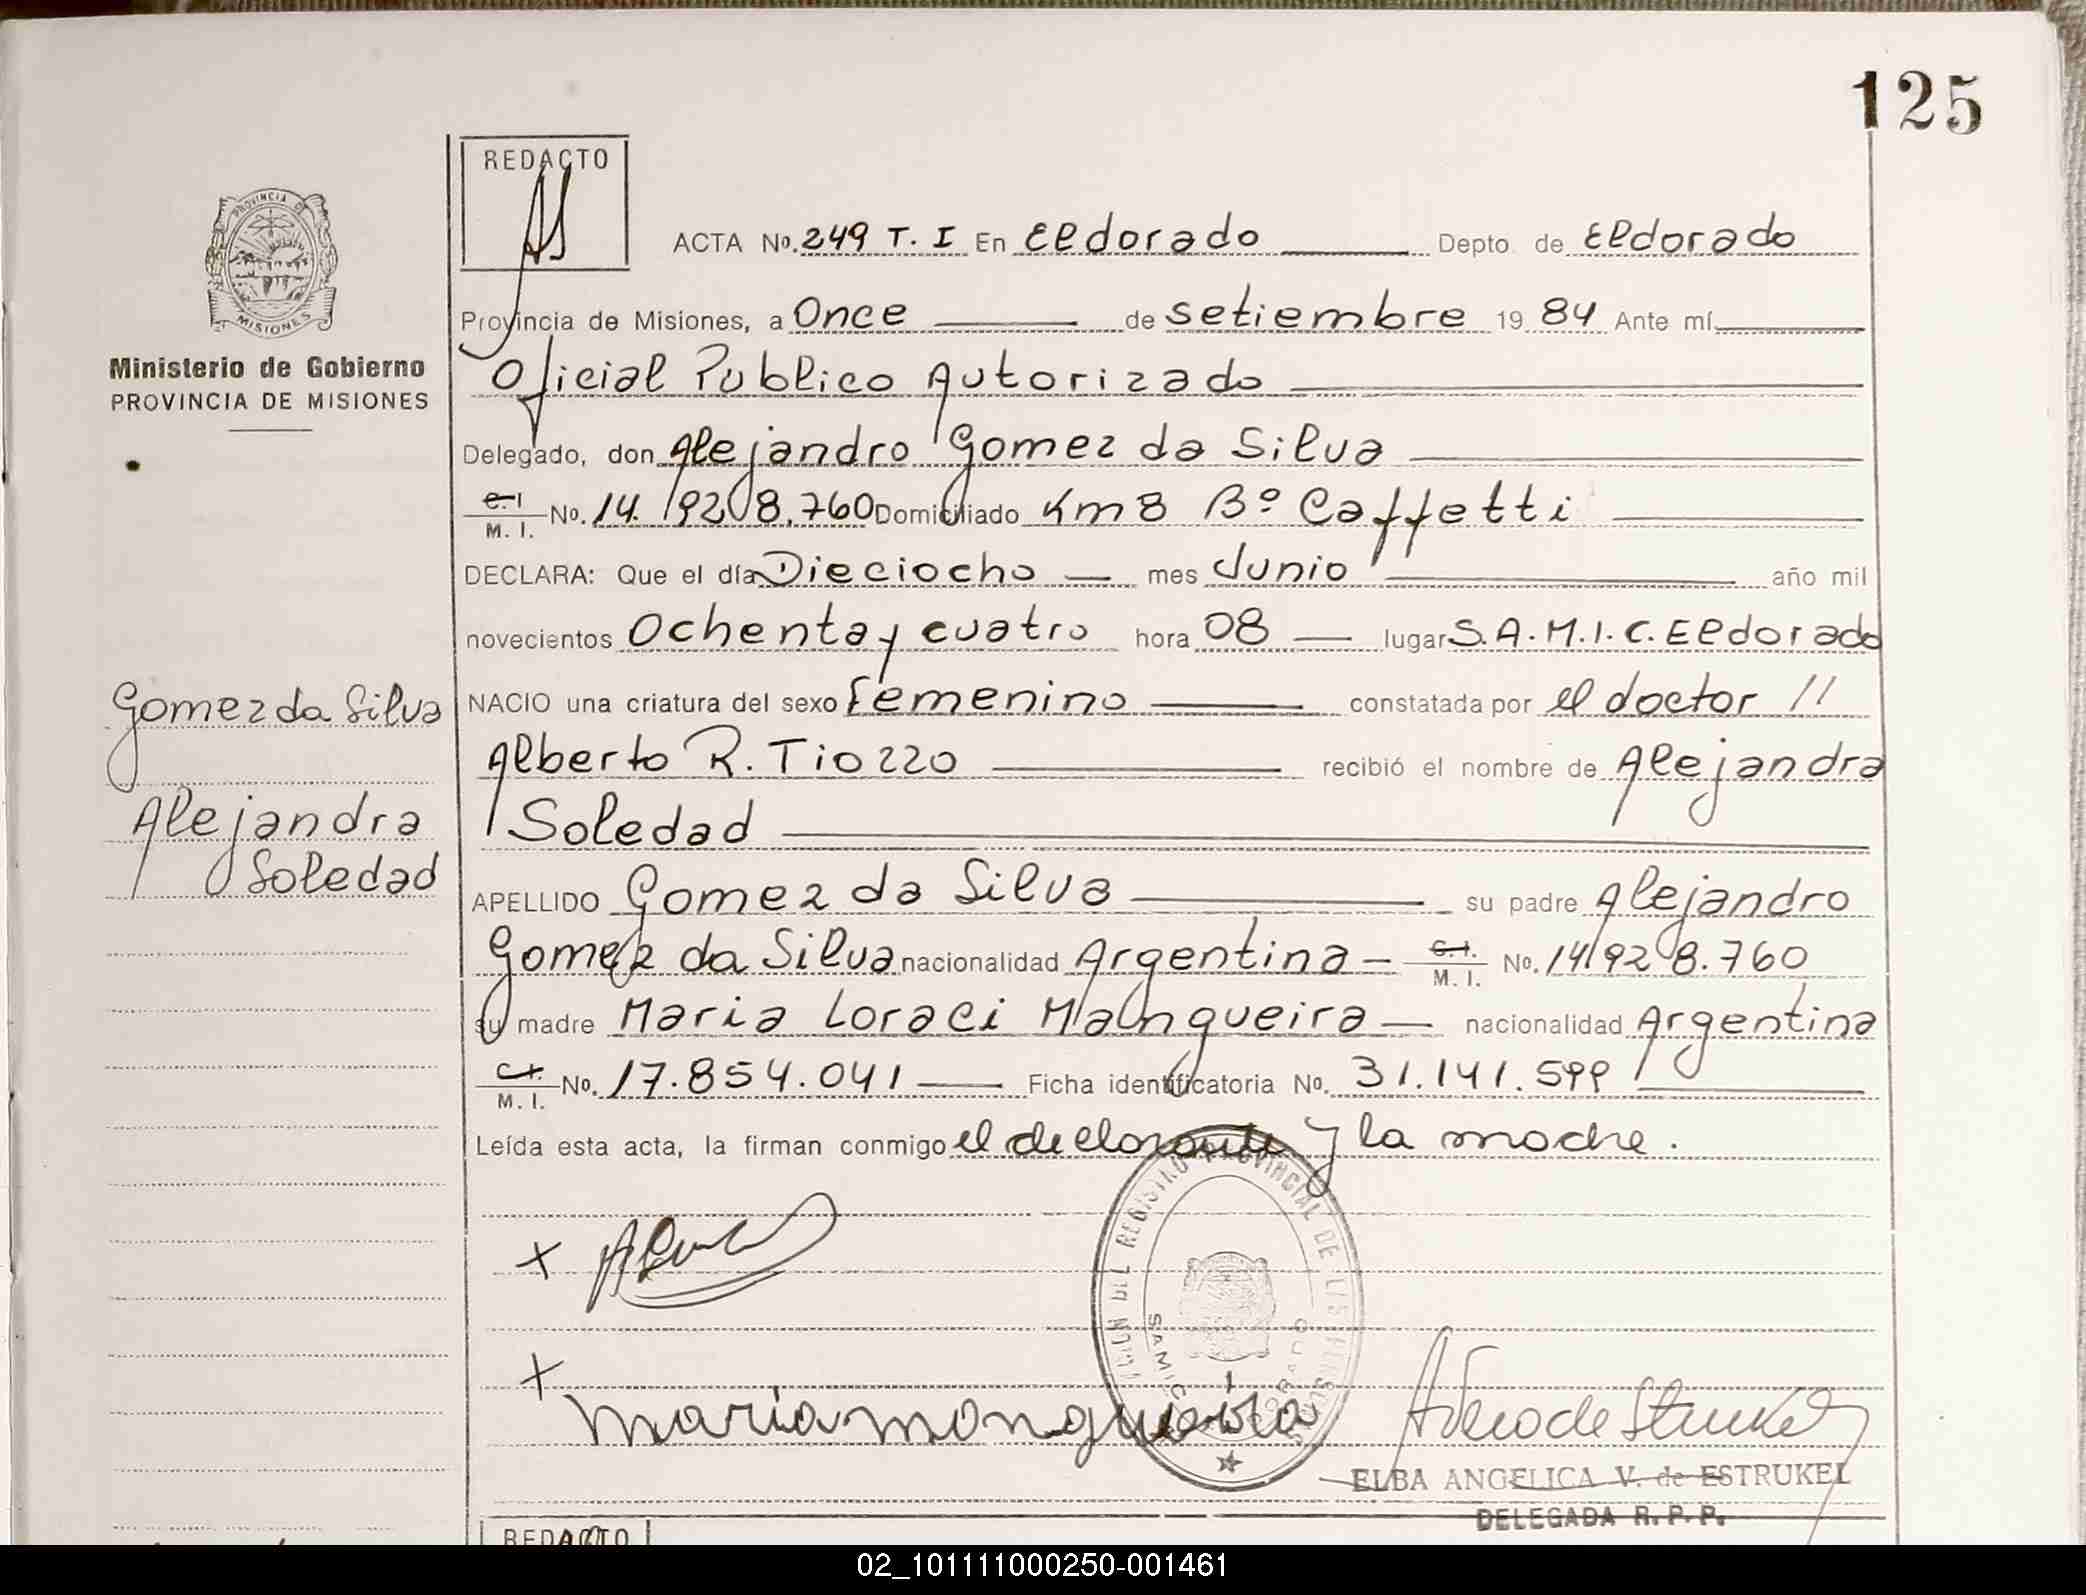 125
REDACTO
ACTA No. 249 T. I En Eldorado Depto. de Eldorado
PROVINCIA DE
MISIONES
Provincia de Misiones, a Once de setiembre 19 84 Ante mí
Ministerio de Gobierno
PROVINCIA DE MISIONES
Oficial Publico Autorizado
Delegado, don Alejandro Gomez da Silva
C.I. M. I. No. 14.928.760 Domiciliado Km 8 Bº Caffetti
DECLARA: Que el día Dieciocho mes Junio año mil
novecientos Ochenta y cuatro hora 08 lugar S.A.M.I.C. Eldorado
NACIO una criatura del sexo femenino constatada por el doctor //
Alberto R. Tiozzo recibió el nombre de Alejandra
Soledad
Gomez da Silva
Alejandra
Soledad
APELLIDO Gomez da Silva su padre Alejandro
Gomez da Silva nacionalidad Argentina - C.I. M. I. No. 14.928.760
su madre Maria Loraci Mangueira nacionalidad Argentina
C.I. M. I. No. 17.854.041 Ficha identificatoria No. 31.141.599
Leída esta acta, la firman conmigo el declarante y la madre.
DEL REGISTRO PROVINCIAL DE LAS PERSONAS
SAMIC ELDORADO
x
x
maria mongueira
ELBA ANGELICA V. de ESTRUKEL
DELEGADA R. P. P.
REDACTO
02_101111000250-001461